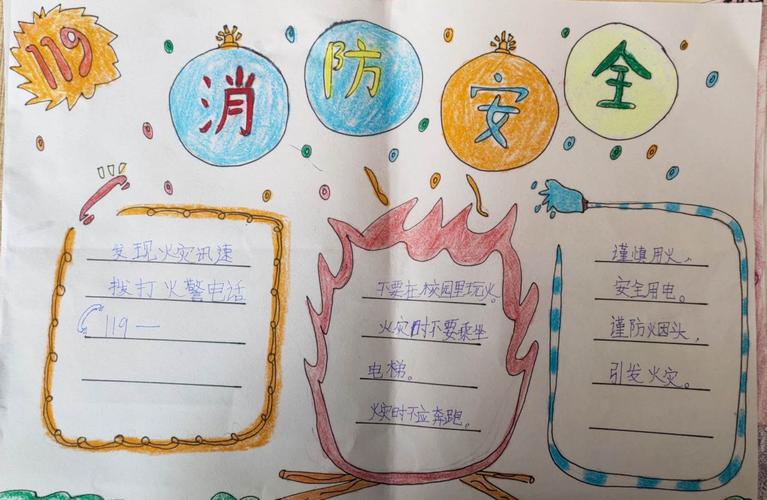 119
消防安全
发现火灾讯速
拨打火警电话
119一
不要在校园里玩火。
火灾时不要乘坐
电梯。
火灾时不应奔跑。
谨慎用火,
安全用电。
谨防烟头,
引发火灾。